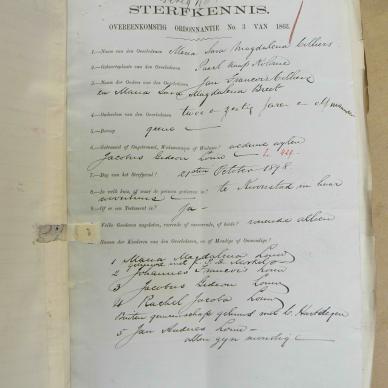 STERFKENNIS.
OVEREENKOMSTIG ORDONNANTIE No. 3 VAN 1865.
1.—Naam van den Overledenen Maria Sara Magdalena Cilliers
2.—Geboorteplaats van den Overledenen Paarl Kaap Kolonie
3.—Namen der Ouders van den Overledenen Jan Francois Cilliers
en Maria Sara Magdalena Breet
4.—Ouderdom van den Overledenen twee en zestig jaren en elf maanden
5.—Beroep geene
6.—Getrouwd of Ongetrouwd, Weduwenaar of Weduwe? weduwe wylen
Jacobus Gideon Louw
7.—Dag van het Sterfgeval? 21sten October 1898
8.—In welk huis, of waar de persoon gestorven is? te Kroonstad in haar
woonhuis
9.—Of er een Testament is? Ja
Welke Goederen nagelaten, roerende of onroerende, of beide? roerende alleen
Namen der Kinderen van den Overledenen, en of Mondig of Onmondig?
1 Maria Magdalena Louw
gehuwd met
2 Johannes Francois Louw
3 Jacobus Gideon Louw
4 Rachel Jacoba Louw
Buiten gemeenschap gehuwd met
5 Jan Andries Louw
allen zyn mondig